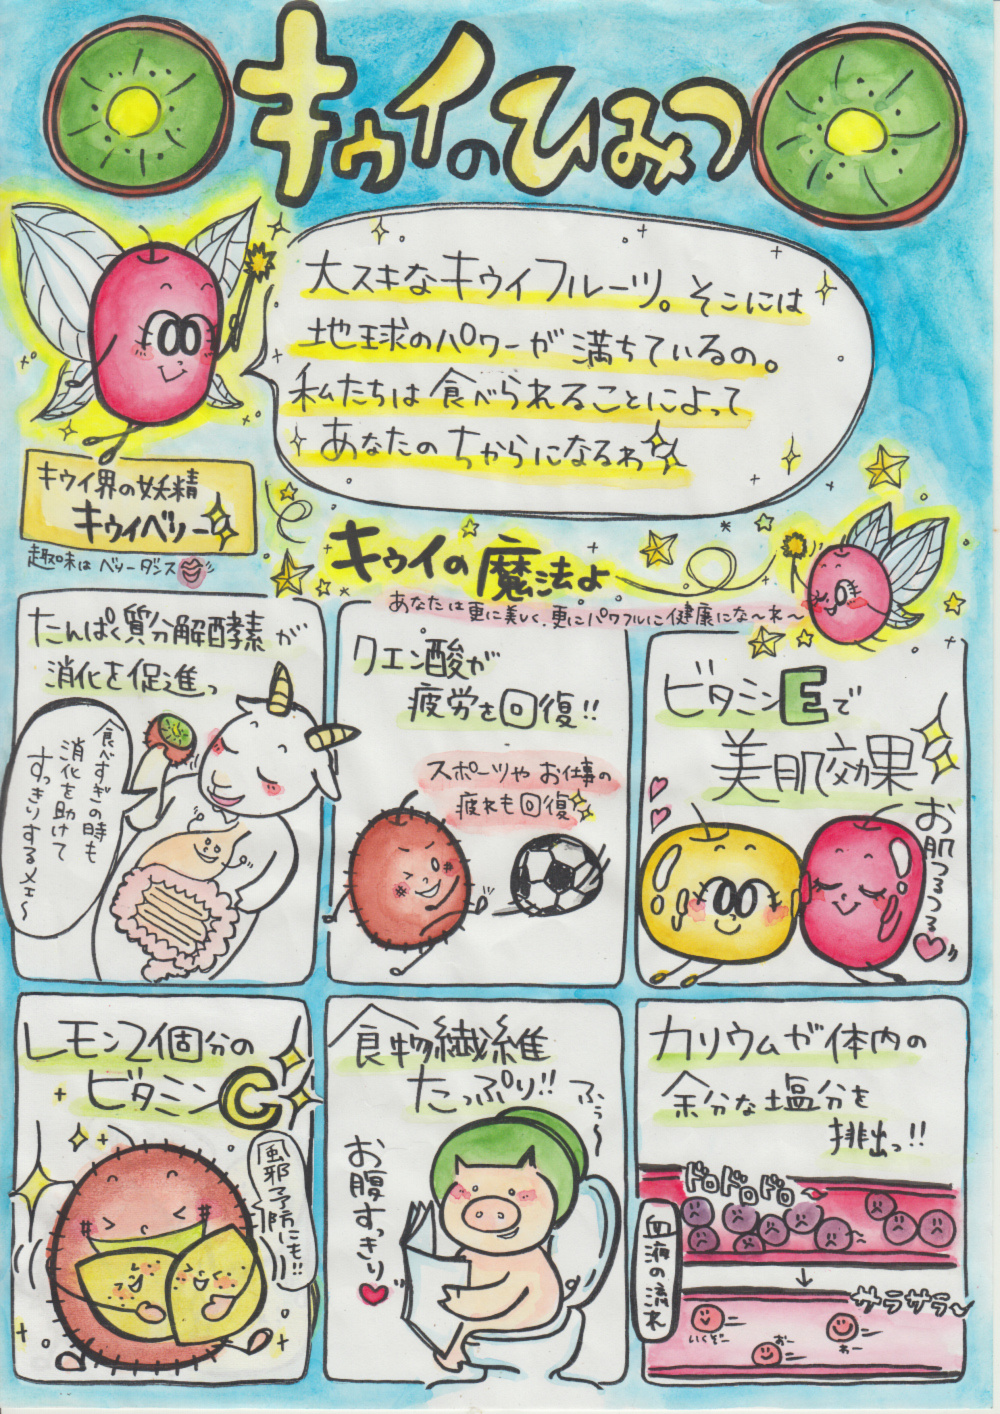 キウイのひみつ
大スキなキウイフルーツ。そこには
地球のパワーが満ちているの。
私たちは食べられることによって
あなたのちからになるわ
キウイ界の妖精
キウイベリー
趣味はベリーダンス
キウイの魔法よ
あなたは更に美しく、更にパワフルに健康にな〜れ〜
たんぱく質分解酵素が
消化を促進っ
食べすぎの時も
消化を助けて
すっきりするメェ〜
クエン酸が
疲労を回復!!
スポーツやお仕事の
疲れも回復
ビタミンEで
美肌効果
お肌つるつる
レモン2個分の
ビタミンC
風邪予防にも!!
食物繊維
たっぷり!!
ふぅ〜
お腹すっきり
カリウムが体内の
余分な塩分を
排出っ!!
ドロドロドロ
血液の流れ
サラサラ〜
いくぞー
おー
わー